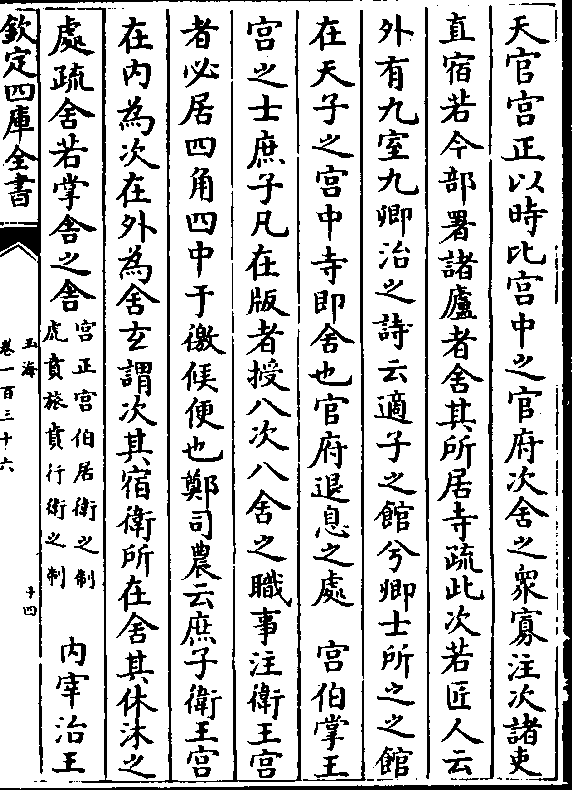 天官宫正以時比宫中之官府次舍之衆寡注次諸吏
直宿若今部署諸廬者舍其所居寺疏此次若匠人云
外有九室九卿治之詩云適子之館兮卿士所之之館
在天子之宫中寺即舍也官府退息之處　宫伯掌王
宫之士庶子凡在版者授八次八舍之職事注衛王宫
者必居四角四中于徼候便也鄭司農云庶子衛王宫
在内為次在外為舍玄謂次其宿衛所在舍其休沐之
處疏舍若掌舍之舍
宫正宫伯居衛之制
虎賁旅賁行衛之制
内宰治王
欽定四庫全書
玉海
卷一百三十六
十四